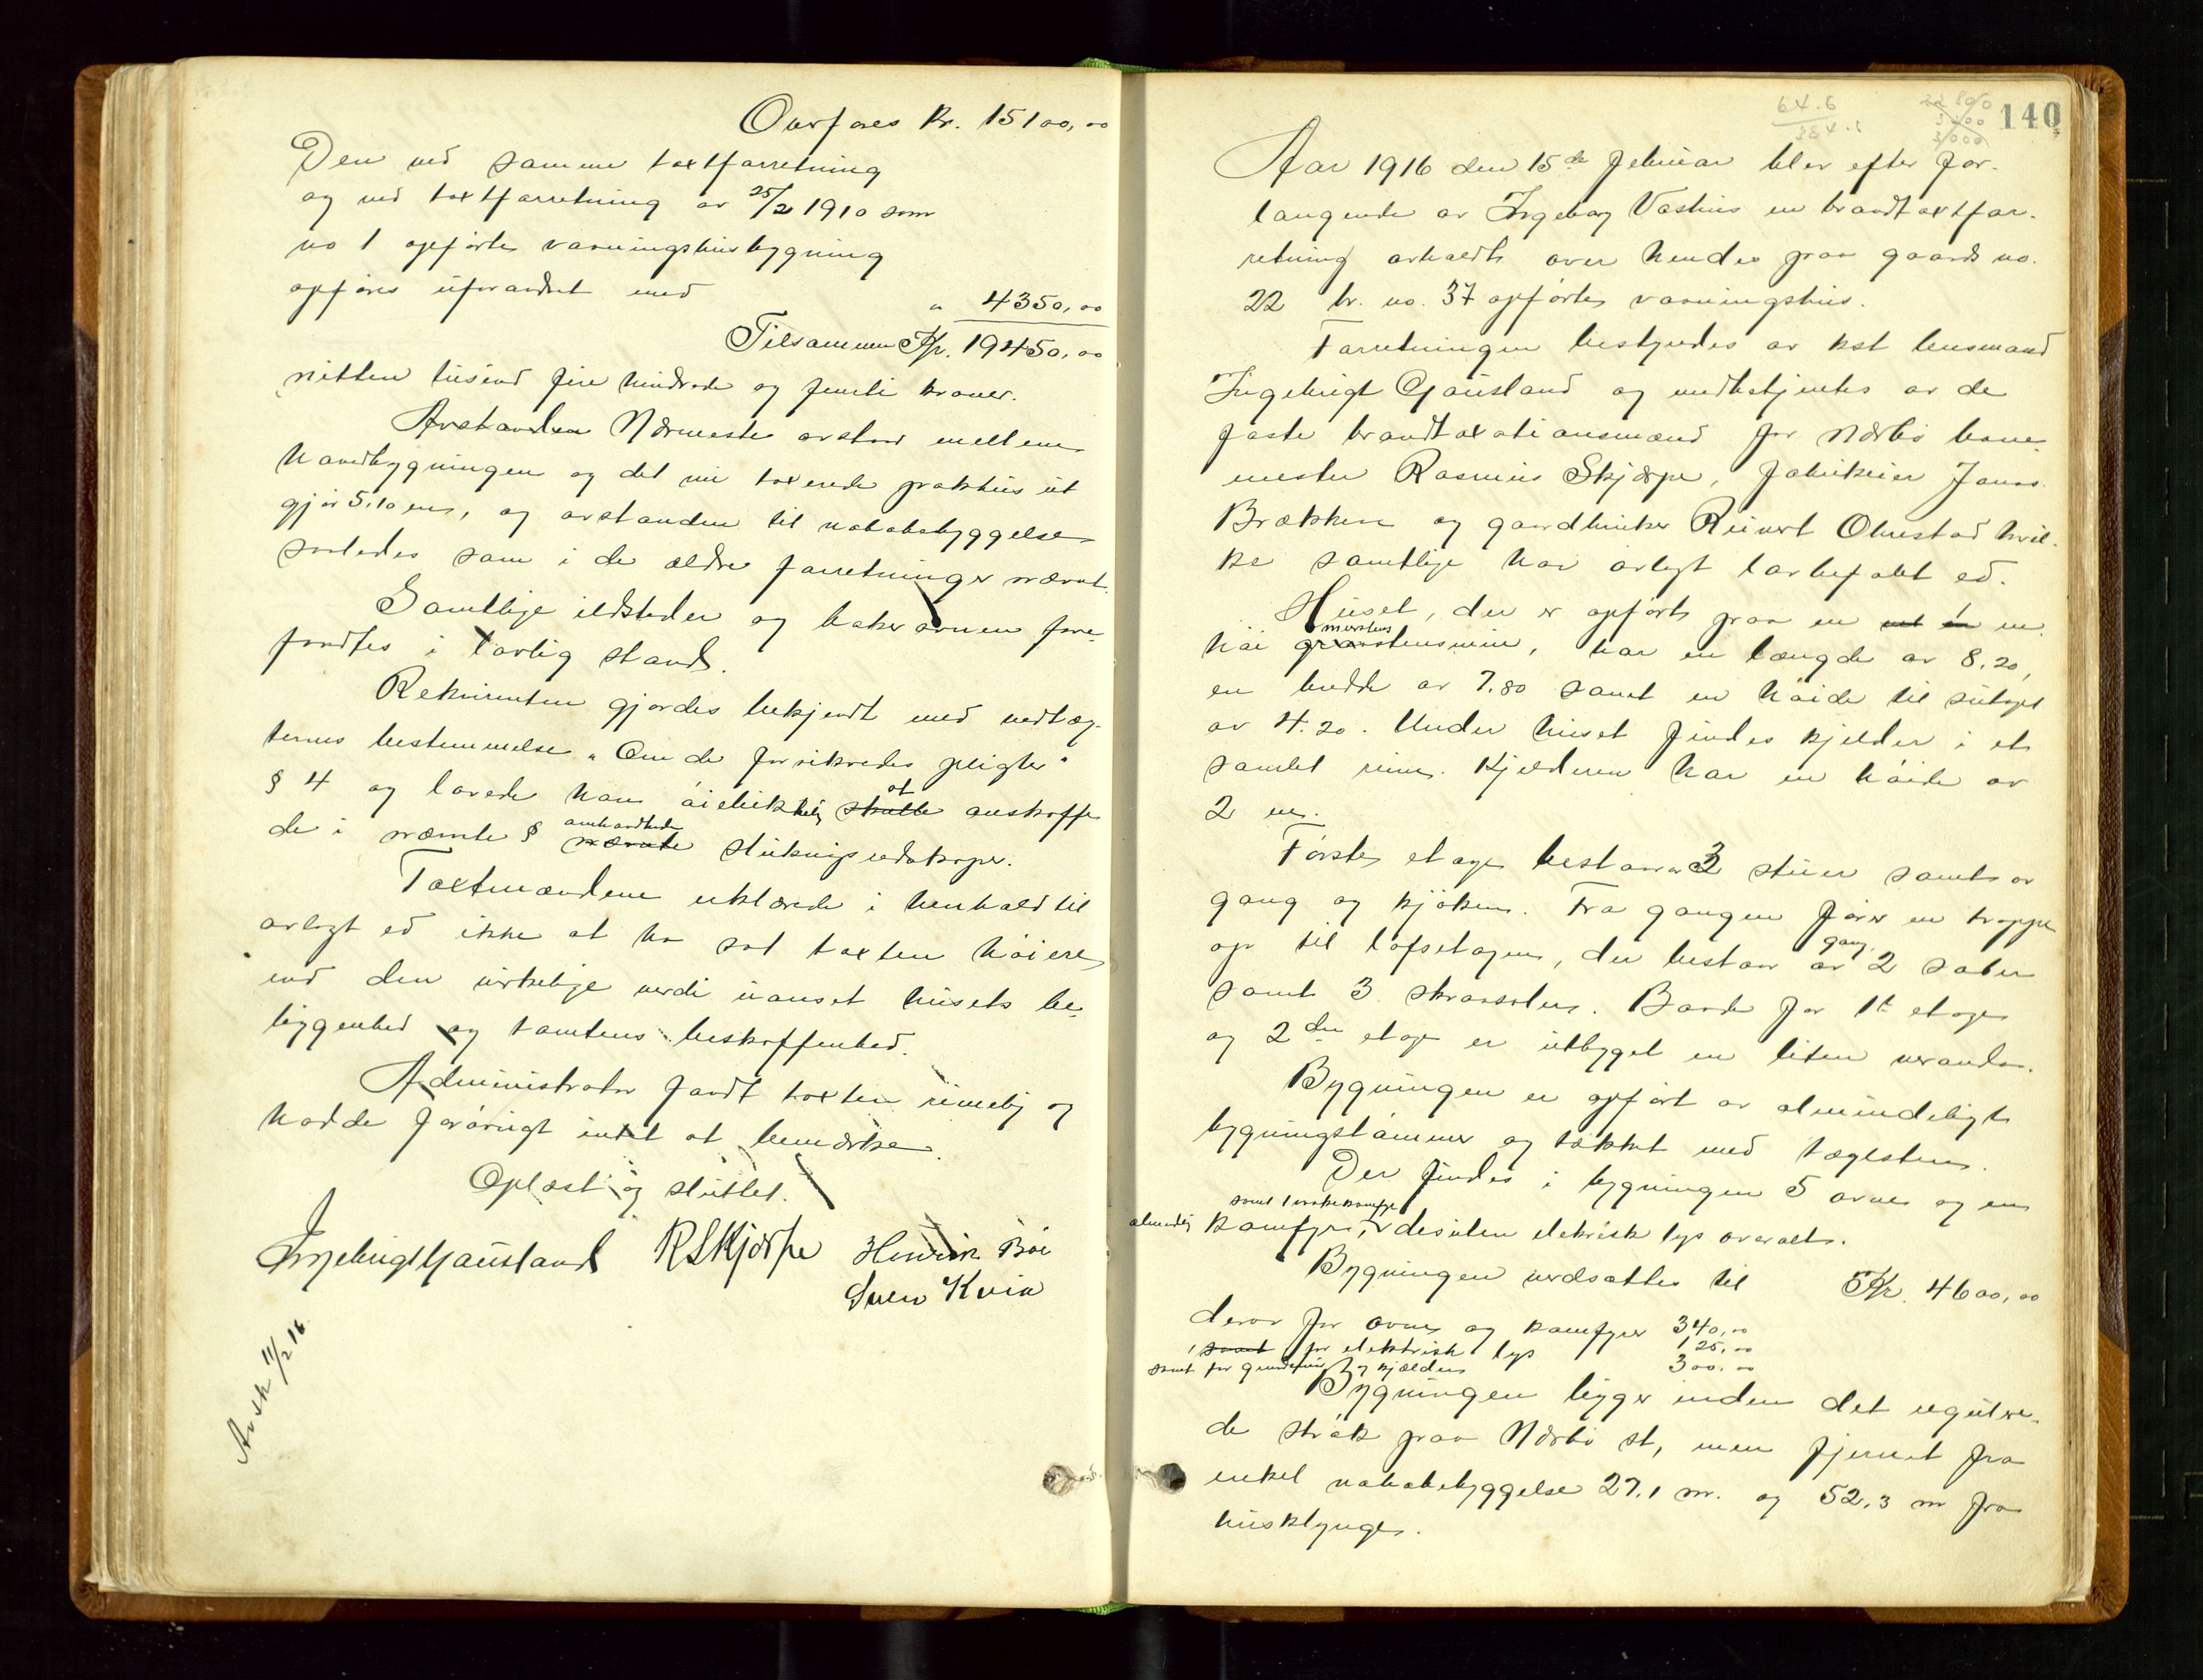 Overføres Kr. 15100,00
Den ved samme taxtforretning
og ved taxtforretning av 25/2 1910 som
no 1 opførte vaaningshusbygning
opføres uforandret med " 4350,00
Tilsammen Kr. 19450,00
nitten tusend fire hundrede og femti kroner.
Avstanden Nærmeste avstand mellem
hovedbygningen og det nu taxerede pakhus ut
gjør 5.10 m, og avstanden til nabobebyggelse
saaledes som i de ældre forretninger nævnt.
Samtlige ildsteder og bakerovnen fore
fandtes i lovlig stand.
Rekvirenten gjordes bekjendt med vedtæg-
ternes bestemmelse "Om de forsikredes pligter"
§ 4 og lovede han øieblikkelig skulle at anskaffe
de i nævnte § nævnte omhandlede slukningsredskaper.
Taxtmændene erklærede i henhold til
avlagt ed ikke at ha sat taxten høiere
end den virkelige verdi uanset husets be-
liggenhed og tomtens beskaffenhed.
Administrator fandt taxten rimelig og
hadde forøvrigt intet at bemærke.
Oplæst og sluttet.
Ingebrigt Gausland RSkjærpe Henrik Bøe
Sven Kvia
Avsk 11/2 16
64.6
22800
3000
140
Aar 1916 den 15de Februar blev efter for-
langende av Ingeborg Vashus en brandtaxtfor-
retning avholdt over hendes paa gaards no.
22 br. no. 37 opførte vaaningshus.
Forretningen bestyredes av kst lensmand
Ingebrigt Gausland og medbetjentes av de
faste brandtaxationsmænd for Nærbø bane-
mester Rasmus Skjærpe, fabrikeier Jonas
Brækken og gaardbruker Reinert Obrestad hvil-
ke samtlige har avlagt lovbefalt ed.
Huset, der er opført paa en 1 m.
høi graastensmur murstens, har en længde av 8.20,
en bredde av 7.80 samt en høide til sutaget
av 4.20. Under huset findes kjelder i et
samlet rum. Kjelderen har en høide av
2 m.
Første etage bestaar av 3 stuer samt av
gang og kjøken. Fra gangen fører en trappe
op til loftsetagen, der bestaar av gang, 2 saler
samt 3 skraasaler. Baade for 1te etage
og 2den etage er utbygget en liten veranda.
Bygningen er opført av almindeligt
bygningstømmer og tækket med taglsten.
Der findes i bygningen 5 ovner og en
almindelig komfyr, samt 1 vaskekomfyr, desuten elektrisk lys overalt.
Bygningen verdsattes til Kr. 4600,00
derav for ovne og komfyrer 340,00
samt for elektrisk lys 125,00
samt for grundmur og kjælder 300.00
Bygningen ligger inden det regulere-
de strøk paa Nærbø st, men fjernet fra
enkel nabobebyggelse 27.1 m. og 52.3 m fra
husklynge.